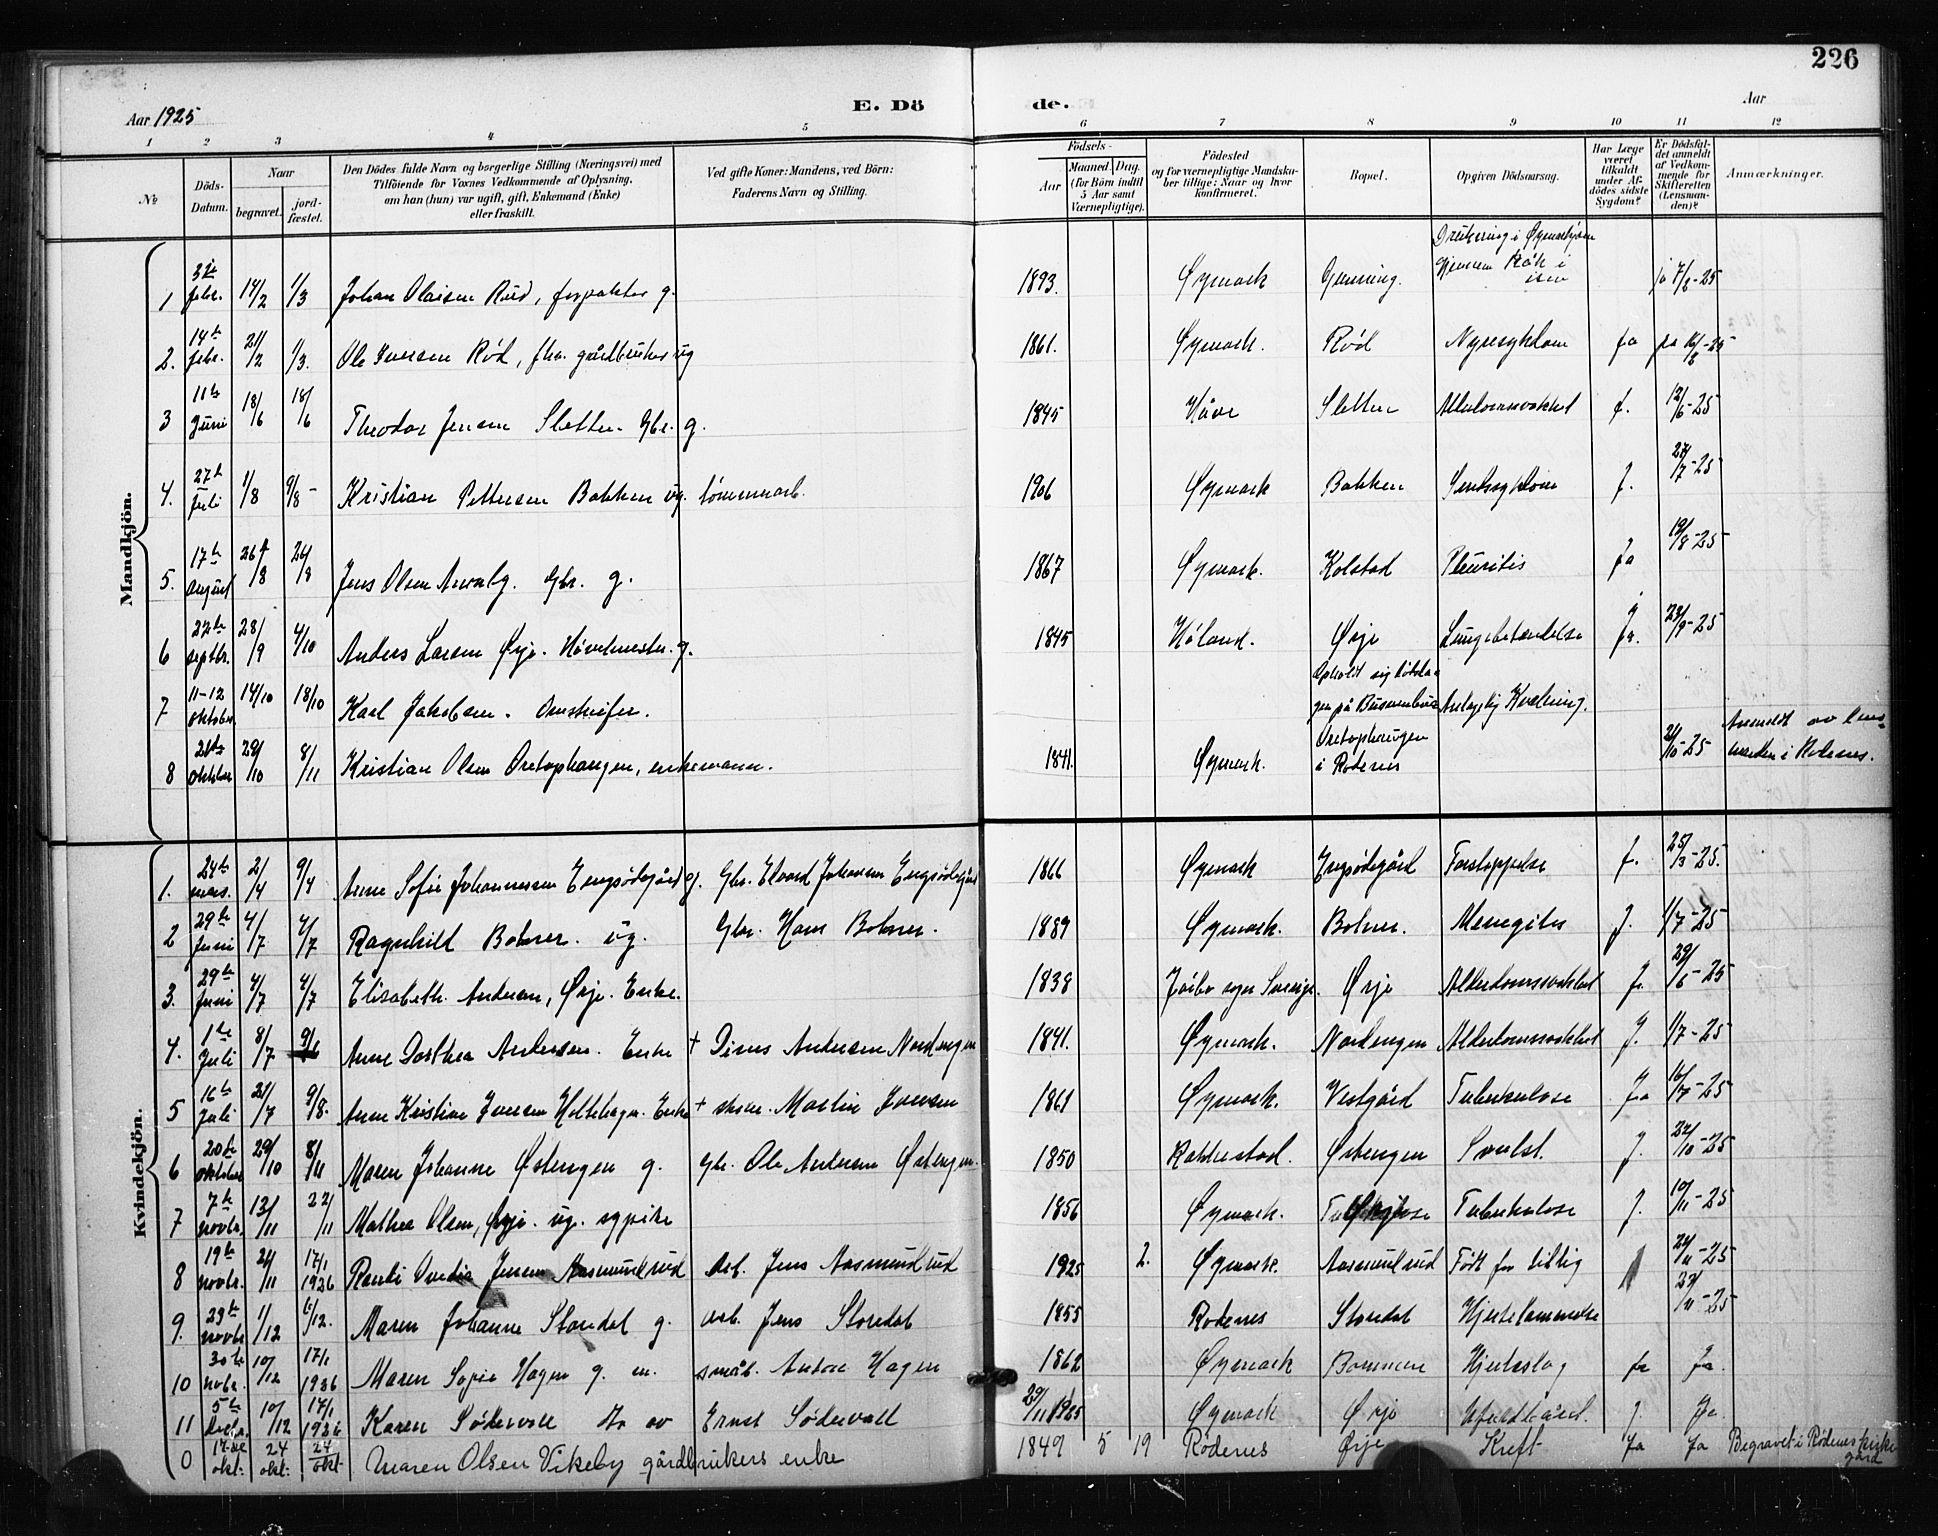 226
Aar 1925
E. Dö
de.
Aar
1 2 3 4 5 6 7 8 9 10 11 12
№
Döds-Datum.
Naar
begravet.
jord-fæstet.
Den Dödes fulde Navn og borgerlige Stilling (Næringsvei) med
Tilföiende for Voxnes Vedkommende af Oplysning,
om han (hun) var ugift, gift, Enkemand (Enke)
eller fraskilt.
Ved gifte Koner: Mandens, ved Börn:
Faderens Navn og Stilling.
Födsels-
Aar
Maaned. Dag.
(for Börn indtil
5 Aar samt
Værnepligtige).
Födested
og for værnepligtige Mandskaber
tillige: Naar og hvor
konfirmeret.
Bopæl.
Opgiven Dödsaarsag.
Har Læge
været
tilkaldt
under Af-
dödes sidste
Sygdom?
Er Dödsfal-
det anmeldt
af Vedkom-
mende for
Skifteretten
(Lensman-
den)?
Anmærkninger.
Mandkjön.
1 febr. 14/2 1/3 Johan Olaisen Rud, forpakter g. 1893. Øymark gjennem i isen ja 7/2-25
2. 14de febr. 21/2 1/3. Ole Iversen Rød, fhv. gårdbruker ug 1861. Øymark. Rød Nyresykdom ja
3 11te Juni 18/6 18/6 Theodor Jensen Sletten Gbr. g. 1845 Sletten Alderdomssvakhet j. 12/6-25
4. 27de Juli 1/8 9/8 - Kristian Pettersen Bakken ug. tømmerarb. 1906 Øymark Bakken j. 27/7-25
5. 17de August 26/8 26/8 Jens Olsen Gbr. g. 1867 Øymark. Kolstad Pleuritis ja 19/8-25
6 22de septbr. 28/9 4/10 Anders Larsen Ørje. g. 1845 Høland. Ørje Lungebetændelse ja. 23/9-25
7 11-12 oktober. 14/10 18/10 Karl Jakobsen. Omstreifer. Opholdt sig Antagelig Kvælning.
8 21de oktober 29/10 8/11 Kristian Olsen Oretophaugen, enkemann. 1841. Øymark. Oretophaugen i Rødenes 21/10-25 Anmeldt av lens-
manden i Rødenes.
Kvindekjön.
1. 24de mars. 2/4 9/4 Anne Sofie Johannessen Engsødegård g. Gbr. Edvard Johansen Engsødegård 1866 Øymark Engsødegård Forstoppelse j. 25/3-25.
2 29de Juni 4/7 4/7 Ragnhild Bohner. ug. Gbr. Hans Bohner. 1889 Øymark. Bohner. Menegitis j. 1/7-25
3. 29de Juni 4/7 4/7 Elisabeth Andersen, Ørje. Enke. 1838 sogn Sverige. Ørje Alderdomssvakhet j. 29/6-25
4. 1ste Juli 8/7 9/6 Anne Dorthea Andersen. Enke + Dines Andersen Nordengen 1841. Øymark. Nordengen Alderdomssvakhet j. 1/7-25
5 16de Juli 21/7 9/8. Anne Kristine Iversen Holtehagen. Enke + Martin Iversen 1861 Øymark. Vestgård Tuberkulose ja 16/7-25
6 20de oktober 29/10 8/11 Maren Johanne Østengen g. Gbr. Ole Andersen Østengen. 1850 Rakkestad. Østengen Svulst. j. 22/10-25
7 7de novbr. 13/11 22/11 Mathea Olsen, Ørje. ug. sypike 1856 Øymark. Tuberkulose j. 10/11-25
8 19de novbr. 24/11 17/1 1926 Randi Ovedia Jensen Aasmundrud Arb. Jens Aasmundrud 1925 2. Øymark. Aasmundrud Født for tidlig 24/11-25
9. 29de novbr. 1/12 6/12. Maren Johanne Stordal g. arb. Jens Stordal 1855 Rødenes Stordal Hjertelammelse
10 30te nobr. 10/12 17/1 1926 Maren Sofie Hagen g. m. småb. Anton Hagen 1862 Øymark Hjerteslag ja Ja.
11 5te Decbr. 10/12 17/1 1926 Karen Södervall dr. av Ernst Södervall 29/11 1925 Øymark Ørje j. Ja.
0 okt. 24 okt. 24 okt. Maren Olsen Vikeby gårdbrukers enke 1849 5 19 Rødenes Ørje Kreft Ja Ja Begravet i Rødenes kirke
gård